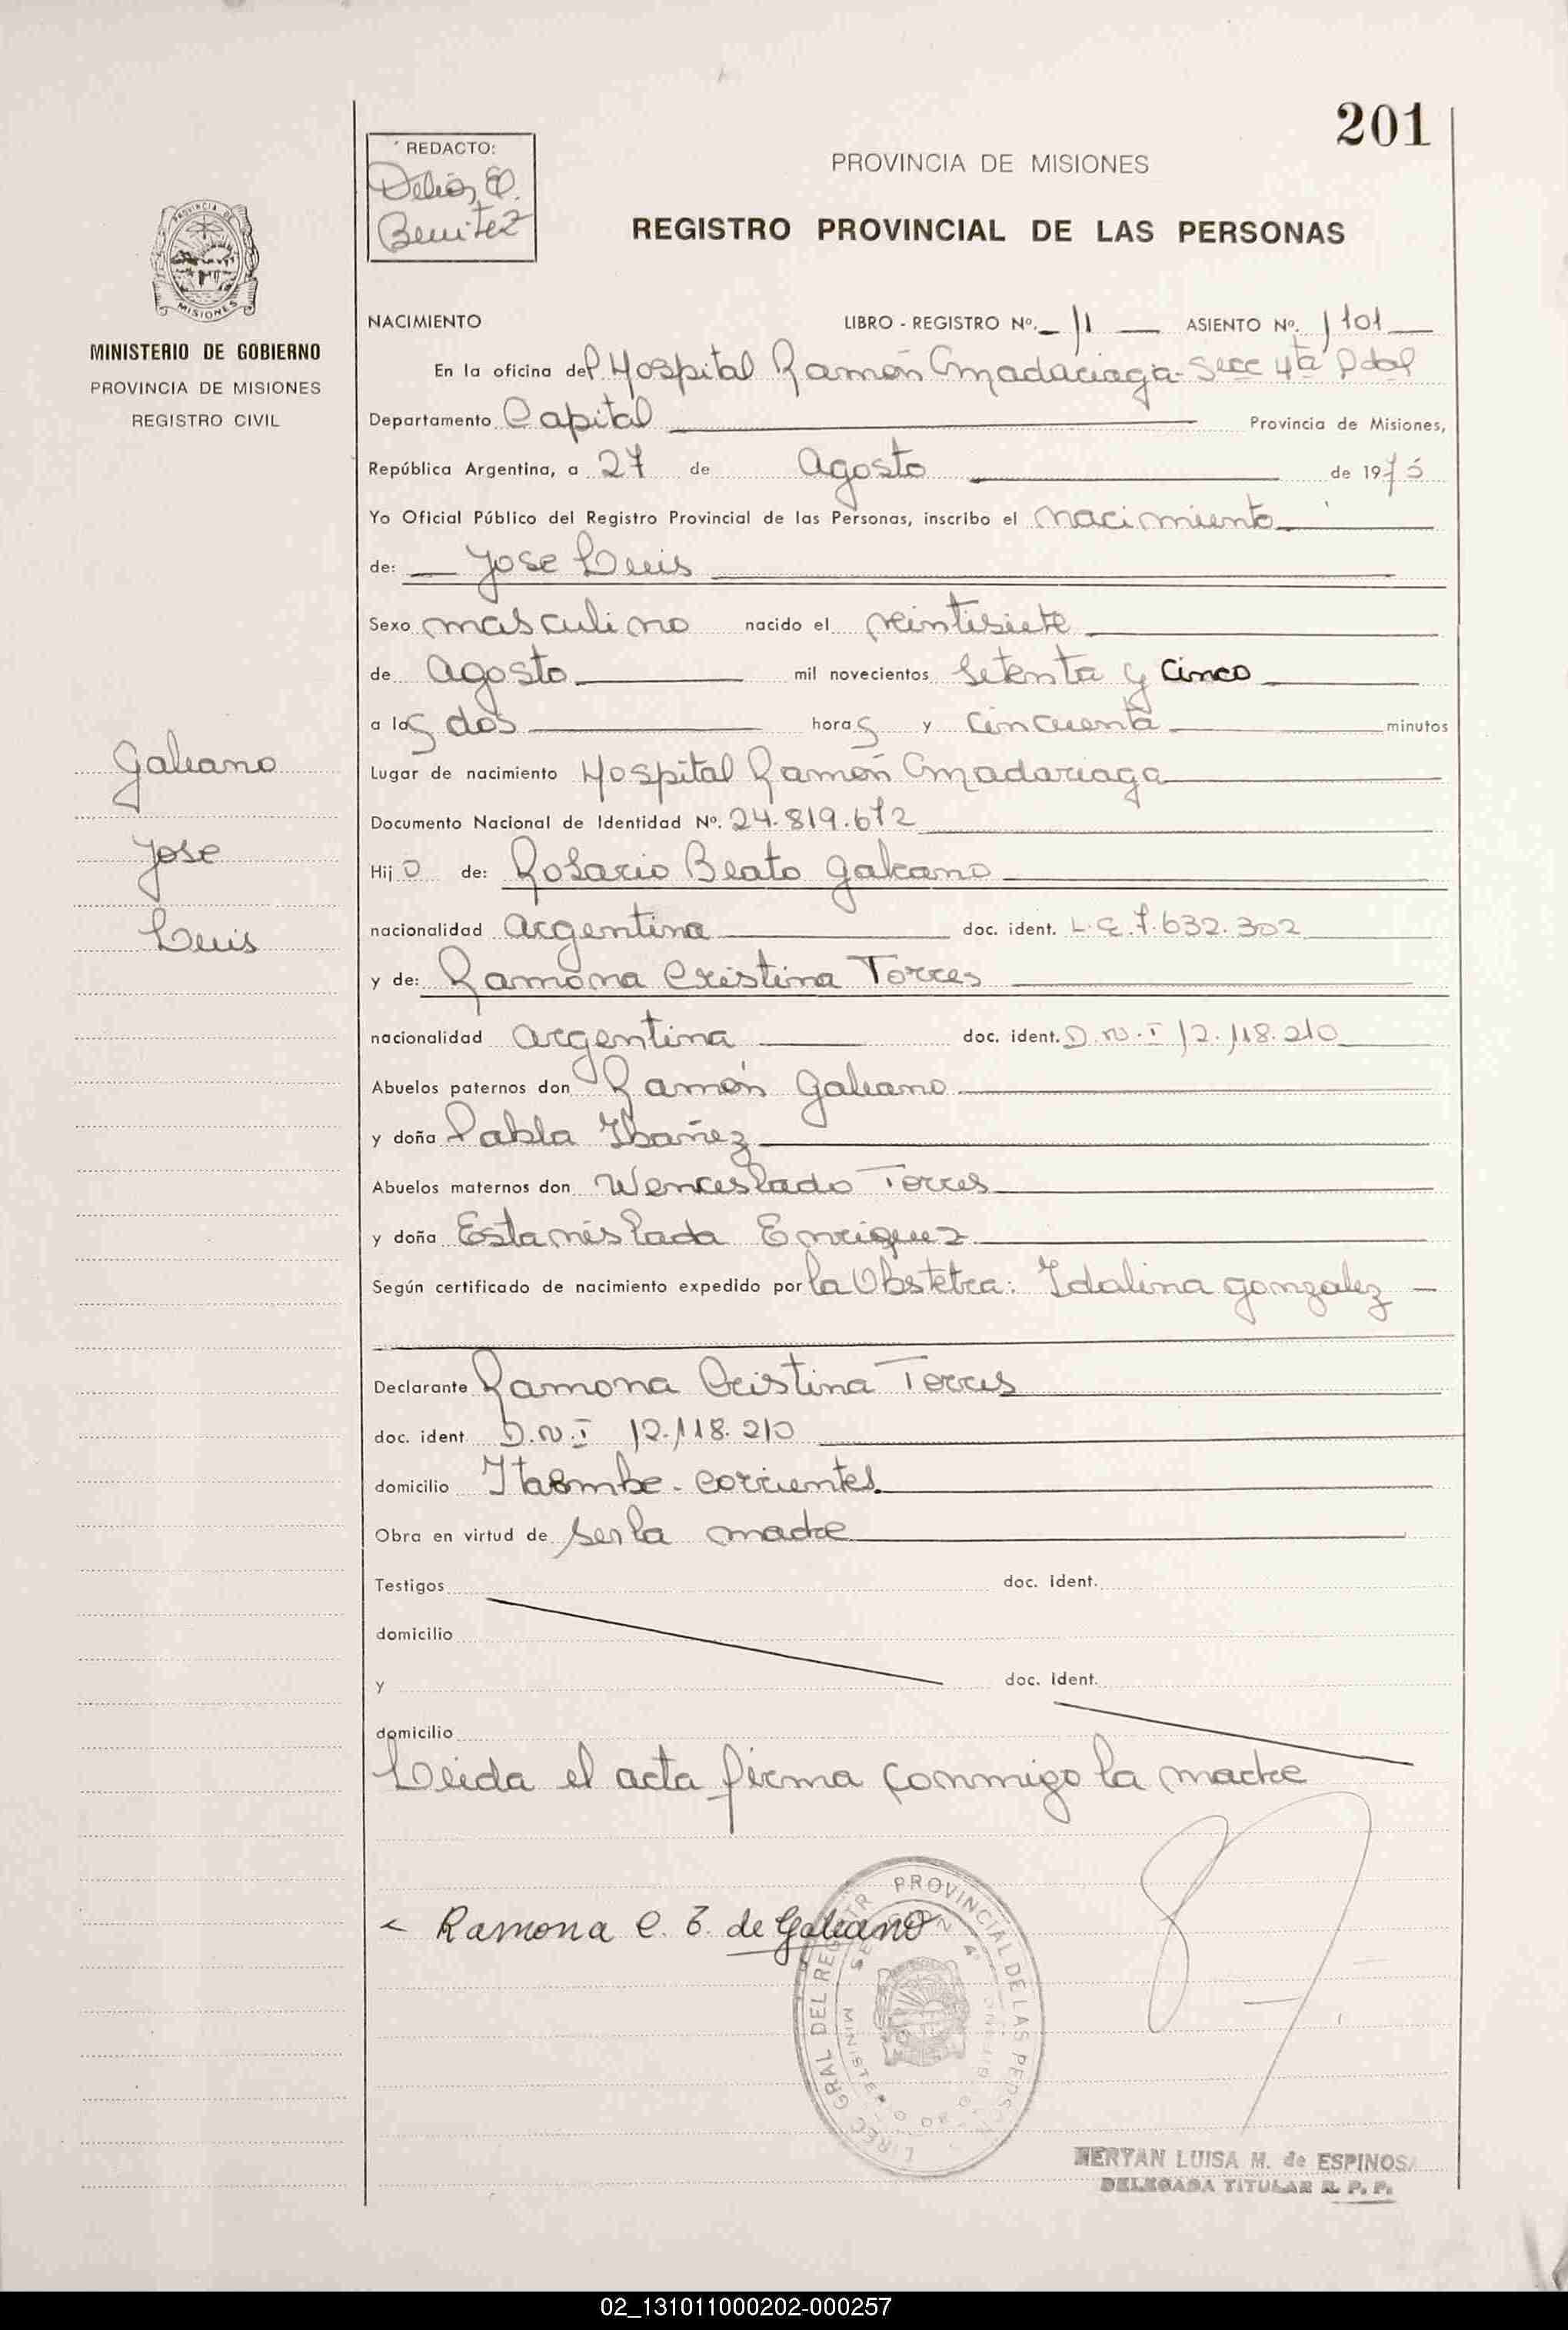 201
REDACTO:
Benitez
PROVINCIA DE MISIONES
REGISTRO PROVINCIAL DE LAS PERSONAS
PROVINCIA DE
MISIONES
MINISTERIO DE GOBIERNO
PROVINCIA DE MISIONES
REGISTRO CIVIL
NACIMIENTO LIBRO - REGISTRO Nº. II ASIENTO Nº. 1101
En la oficina del Hospital Ramón Madariaga - Secc 4ta Pdas
Departamento Capital Provincia de Misiones,
República Argentina, a 27 de Agosto de 1975
Yo Oficial Público del Registro Provincial de las Personas, inscribo el nacimiento
de: Jose Luis
Sexo masculino nacido el veintisiete
de Agosto mil novecientos setenta y cinco
a las dos horas y cincuenta minutos
Galeano
Jose
Luis
Lugar de nacimiento Hospital Ramón Madariaga
Documento Nacional de Identidad Nº. 24.819.672
Hijo de: Rosario Beato Galeano
nacionalidad Argentina doc. ident. L.E. 7.632.302
y de: Ramona Cristina Torres
nacionalidad Argentina doc. ident. D.N.I 12.118.210
Abuelos paternos don Ramón Galeano
y doña Pabla Ibañez
Abuelos maternos don Wenceslado Torres
y doña Estanislada Enriquez
Según certificado de nacimiento expedido por la Obstetra: Idalina Gonzalez
Declarante Ramona Cristina Torres
doc. ident. D.N.I 12.118.210
domicilio Itaembe - Corrientes
Obra en virtud de ser la madre
Testigos doc. ident.
domicilio
y doc. ident.
domicilio
Leida el acta firma conmigo la madre
Ramona C. T. de Galeano
PROVINCIAL DE LAS
GRAL DEL
MERYAN LUISA M. de ESPINOSA
DELEGADA TITULAR R. P. P.
02_131011000202-000257